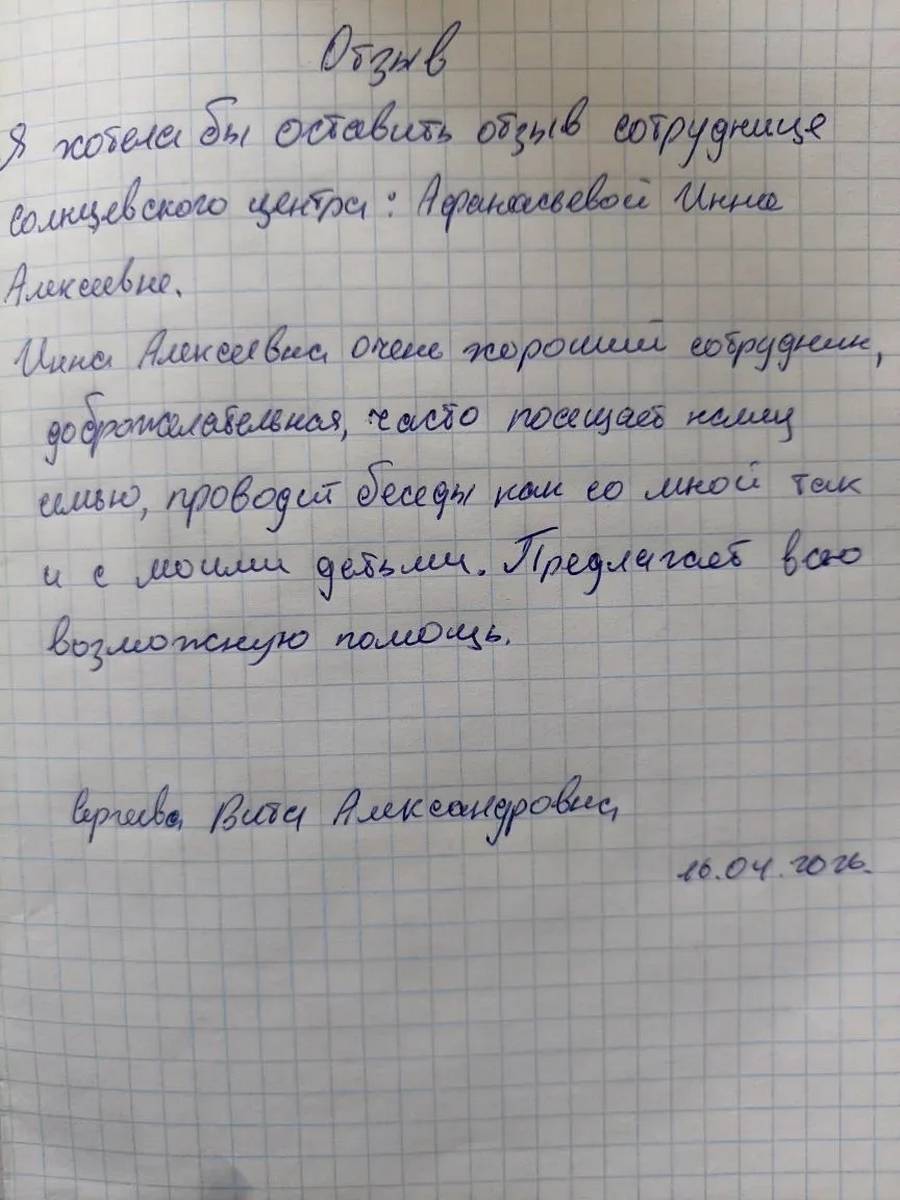 Отзыв
Я хотела бы оставить отзыв сотруднице
солнцевского центра: Афанасьевой Инне
Алексеевне.
Инна Алексеевна очень хороший сотрудник,
доброжелательная, часто посещает нашу
семью, проводит беседы как со мной так
и с моими детьми. Предлагает всю
возможную помощь.
Сергеева Вита Александровна
16.04.2026.